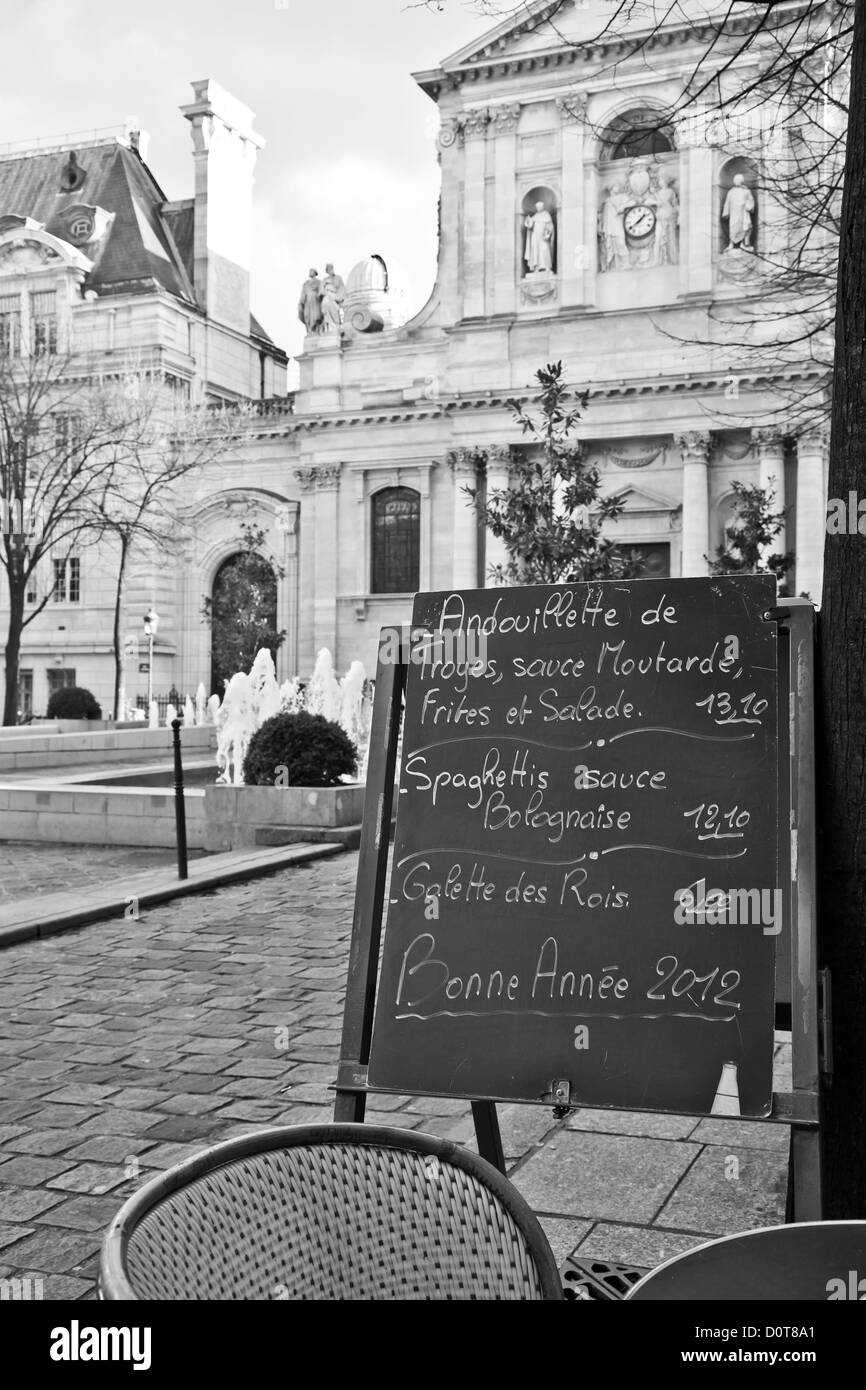 Andouillette de
Troyes, sauce Moutarde,
Frites et Salade. 13,10
Spaghettis sauce
Bolognaise 12,10
Galette des Rois. 6,00
Bonne Année 2012
alamy
a
alamy
Image ID: D0T8A1
www.alamy.com